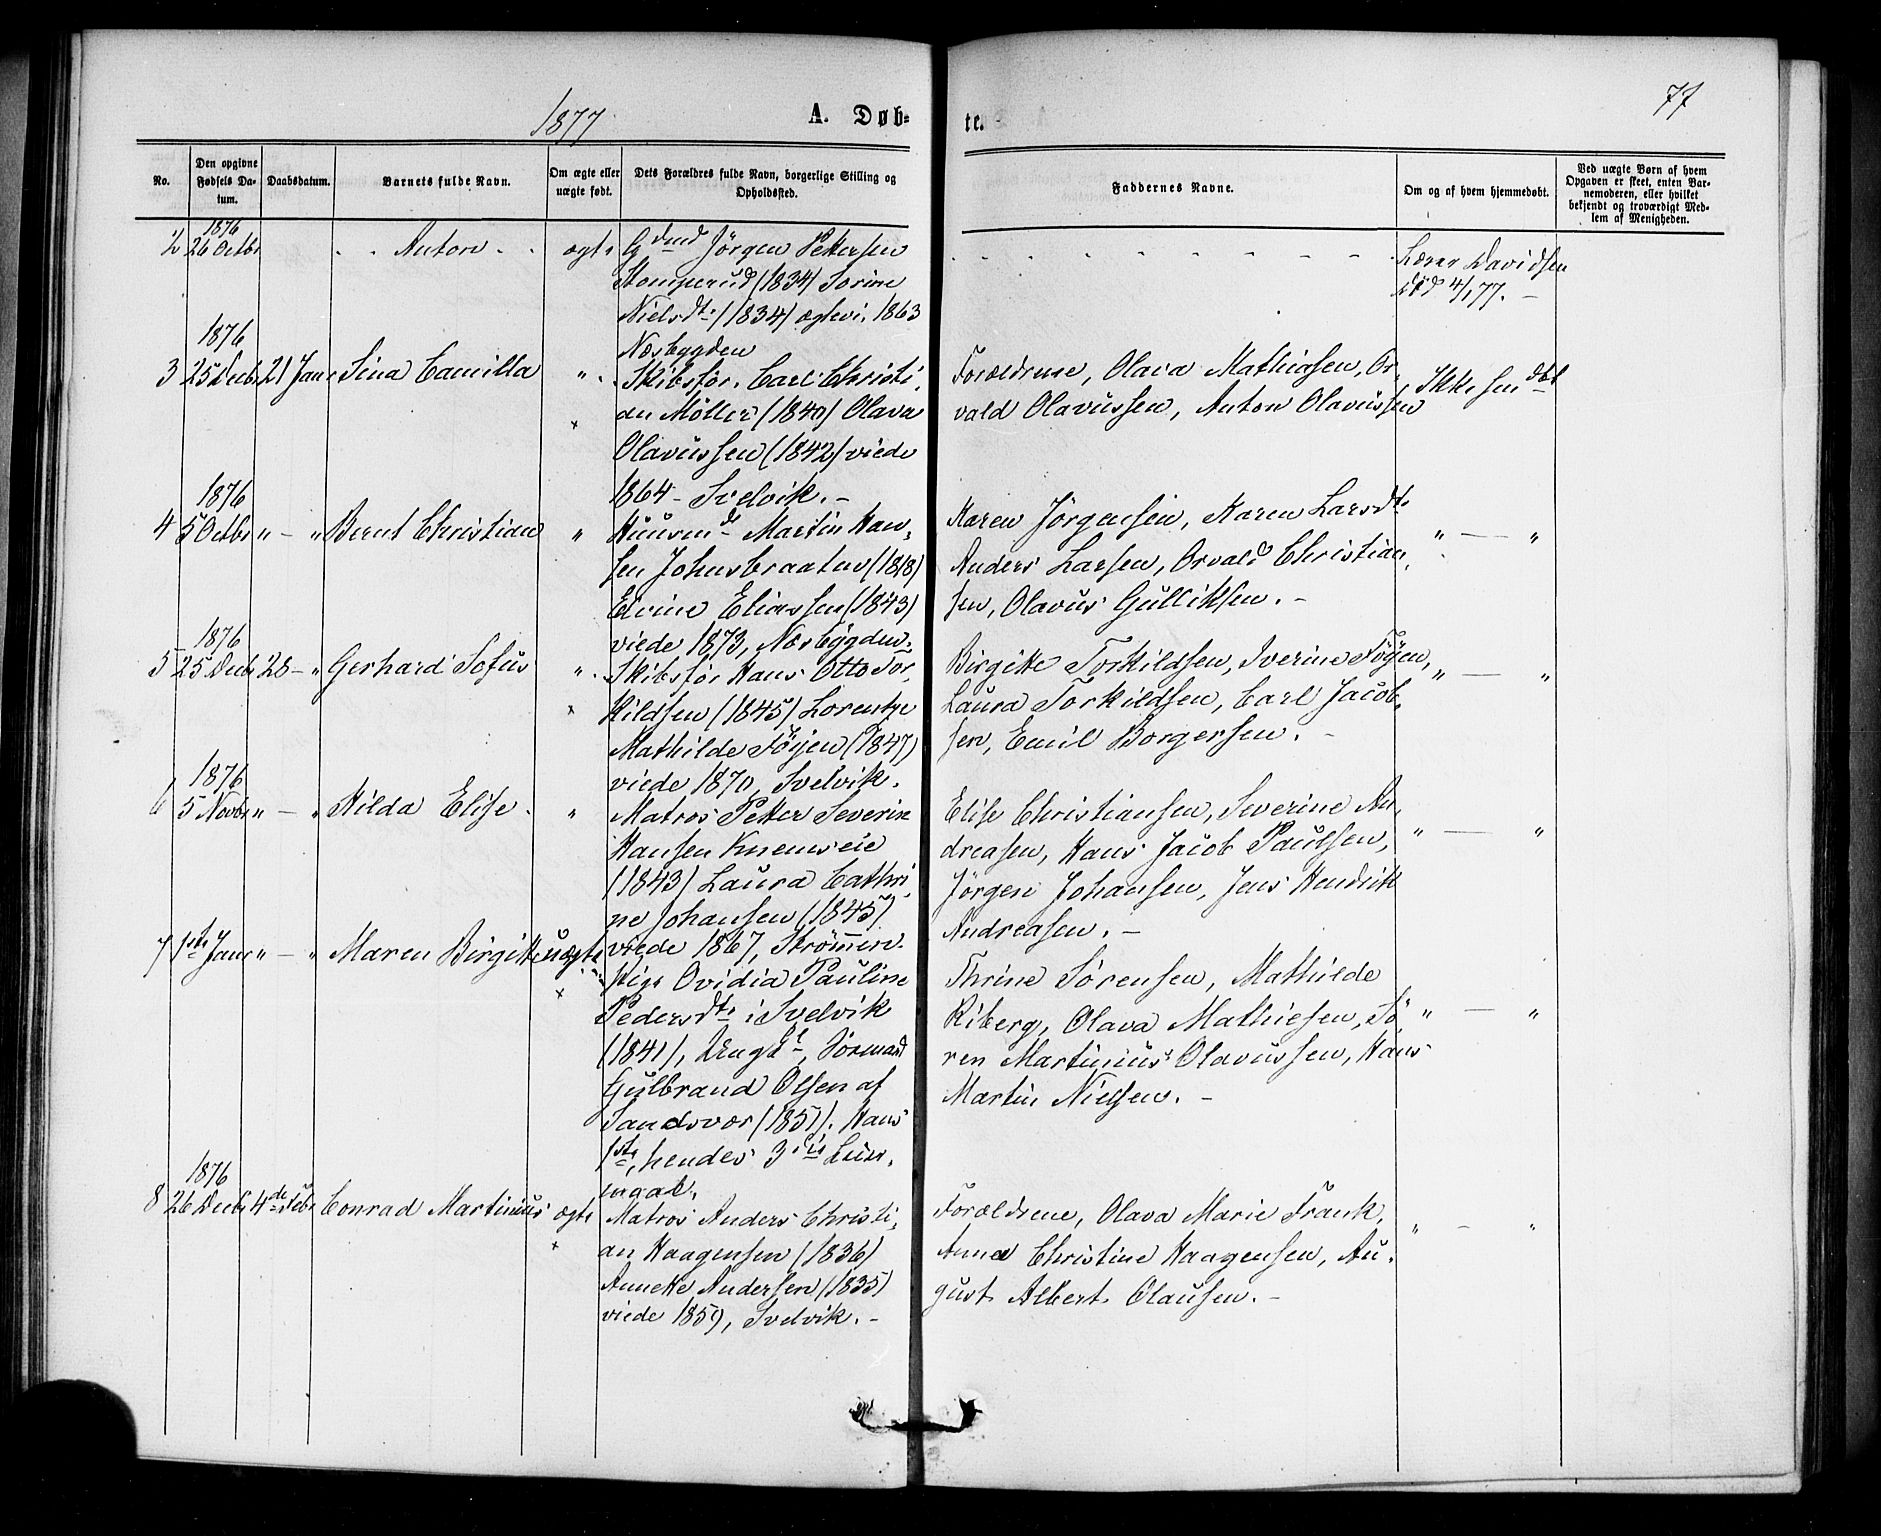 1877
A. Døb-
te.
77
No.
Den opgivne Fødsels Datum.
Daabsdatum.
Barnets fulde Navn.
Om ægte eller uægte født.
Dets Forældres fulde Navn, borgerlige Stilling og Opholdssted.
Faddernes Navne.
Om og af hvem hjemmedøbt.
Ved uægte Børn af hvem Opgaven er skeet, enten Barnemoderen, eller hvilket bekjendt og troværdigt Medlem af Menigheden.
1876
2 26 Octbr Anton ægte Gdmd Jörgen Pettersen
Stomperud (1834) Sorine
Nielsdtr (1834) ægtevi. 1863
Næsbygden
Lærer Davidsen
död 4/1 77. –
1876
3 25 Decbr 21 Janr Sina Camilla " Skibsför. Carl Christi,
an Möller (1840) Olava
Olavussen (1842) viede
1864 – Svelvik. –
Forældrene, Olava Mathiasen, Or,
vald Olavussen, Anton Olavussen
Ikke hjmdbt
1876
4 5 Octbr " – " Bernt Christian " Huusmd Martin Han,
sen Johnsbraaten (1818)
Elvine Eliassen (1843)
viede 1873, Næsbygden.
Karen Jörgensen, Karen Larsdtr
Anders Larsen, Orvald Christian,
sen, Olavus Gulliksen. –
" – "
1876
5 25 Decbr 28 – " Gerhard Sofus " Skibsför Hans Otto Tor,
kildsen (1845) Lorentze
Mathilde Föyen (1847)
viede 1870, Svelvik.
Birgitte Torkildsen, Iverine Föyen,
Laura Torkildsen, Carl Jacob,
sen, Emil Borgersen. –
" – "
1876
6 5 Novbr " – " Hilda Elise " Matros Petter Severin
Hansen Knemseie
(1843) Laura Cathri,
ne Johansen (1845)
viede 1867, Strömmen.
Elise Christiansen, Severine An,
dreasen, Hans Jacob Paulsen,
Jörgen Johansen, Jens Hendrik
Andreasen. –
" – "
7 1ste Janr " – " Maren Birgitte uægte
Pige Ovidia Pauline
Pedersdtr i Svelvik
(1841), Ungk, Sömand
Gulbrand Olsen af
Sandsvær (1851). Hans
1ste, hendes 3die Leier,
maal.
Thrine Sörensen, Mathilde
Riberg, Olava Mathiesen, Sö,
ren Martinius Olavussen, Hans
Martin Nielsen. –
" – "
1876
8 26 Decbr 4de Febr Conrad Martinius ægte Matros Anders Christi,
an Haagensen (1836)
Annette Andersen (1835)
viede 1859, Svelvik. –
Forældrene, Olava Marie Frank,
Anna Christine Haagensen, Au,
gust Albert Olausen. –
" – "